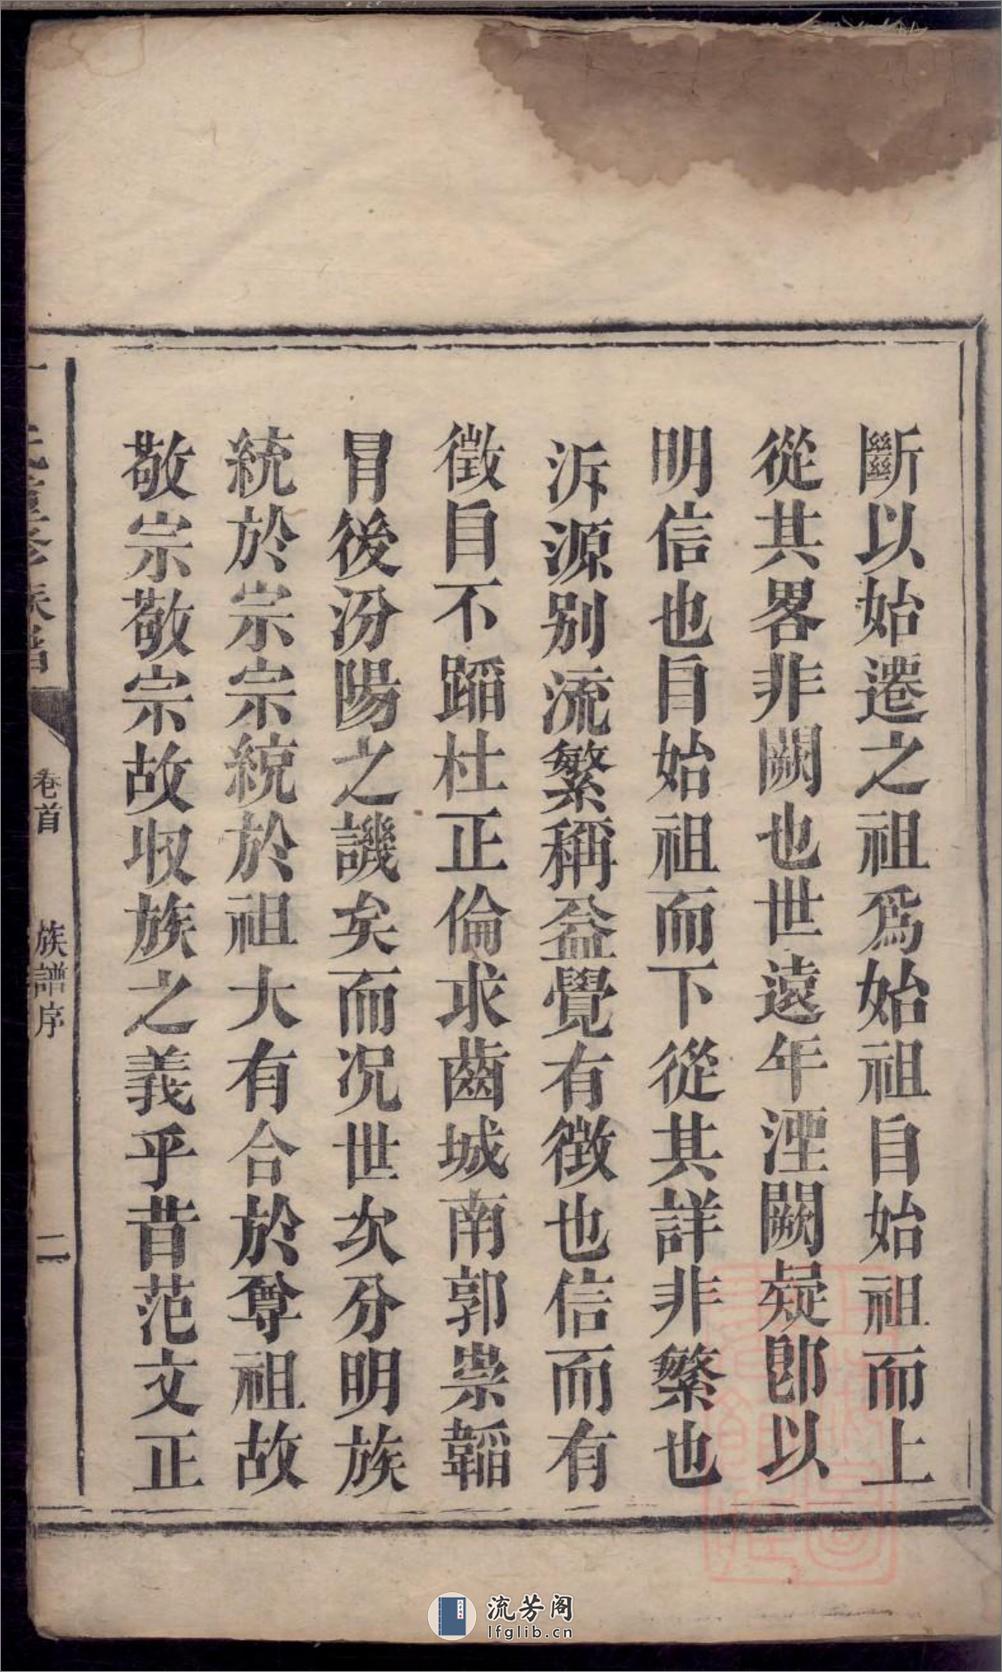 斷以始遷之祖爲始祖自始祖而上
從其畧非闕也世遠年湮闕疑卽以
明信也自始祖而下從其詳非繁也
泝源别流繁稱益覺有徵也信而有
徵自不蹈杜正倫求齒城南郭崇韜
冐後汾陽之譏矣而况世次分明族
統於宗宗統於祖大有合於尊祖故
敬宗敬宗故收族之義乎昔范文正
族譜
卷首
族譜序
二
流芳阁
lfglib.cn